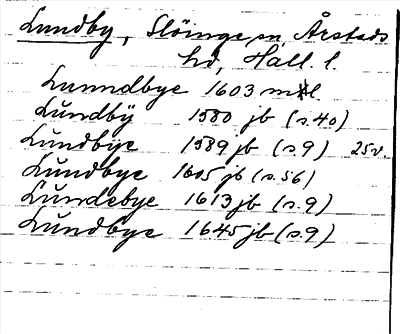 Lundby, Slöinge sn, Årstads
hd, Hall. l.
Lunndbye 1603 mtl
Lŭndbÿ 1580 jb (s.40)
Lŭndbye 1589 jb (s.9) 25v.
Lŭndbye 1605 jb (s.56)
Lŭndebye 1613 jb (s.9)
Lŭndbye 1645 jb (s.9)